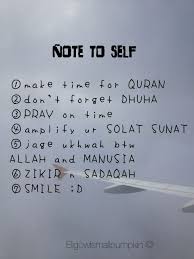 NOTE TO SELF
① make time for QURAN
② don't forget DHUHA
③ PRAY on time
④ amplify ur SOLAT SUNAT
⑤ jage ukhwah btw
ALLAH and MANUSIA
⑥ ZIKIR n SADAQAH
⑦ SMILE :D